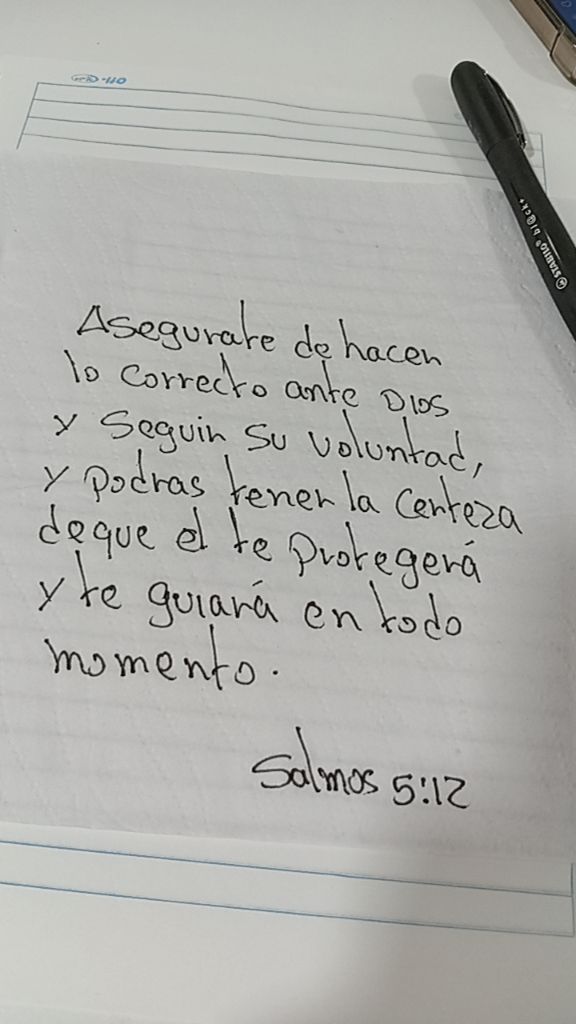 Asegurate de hacer
lo correcto ante Dios
y seguir su voluntad,
y podras tener la certeza
de que el te protegerá
y te guiará en todo
momento.
Salmos 5:12
STABILO® bl@ck+